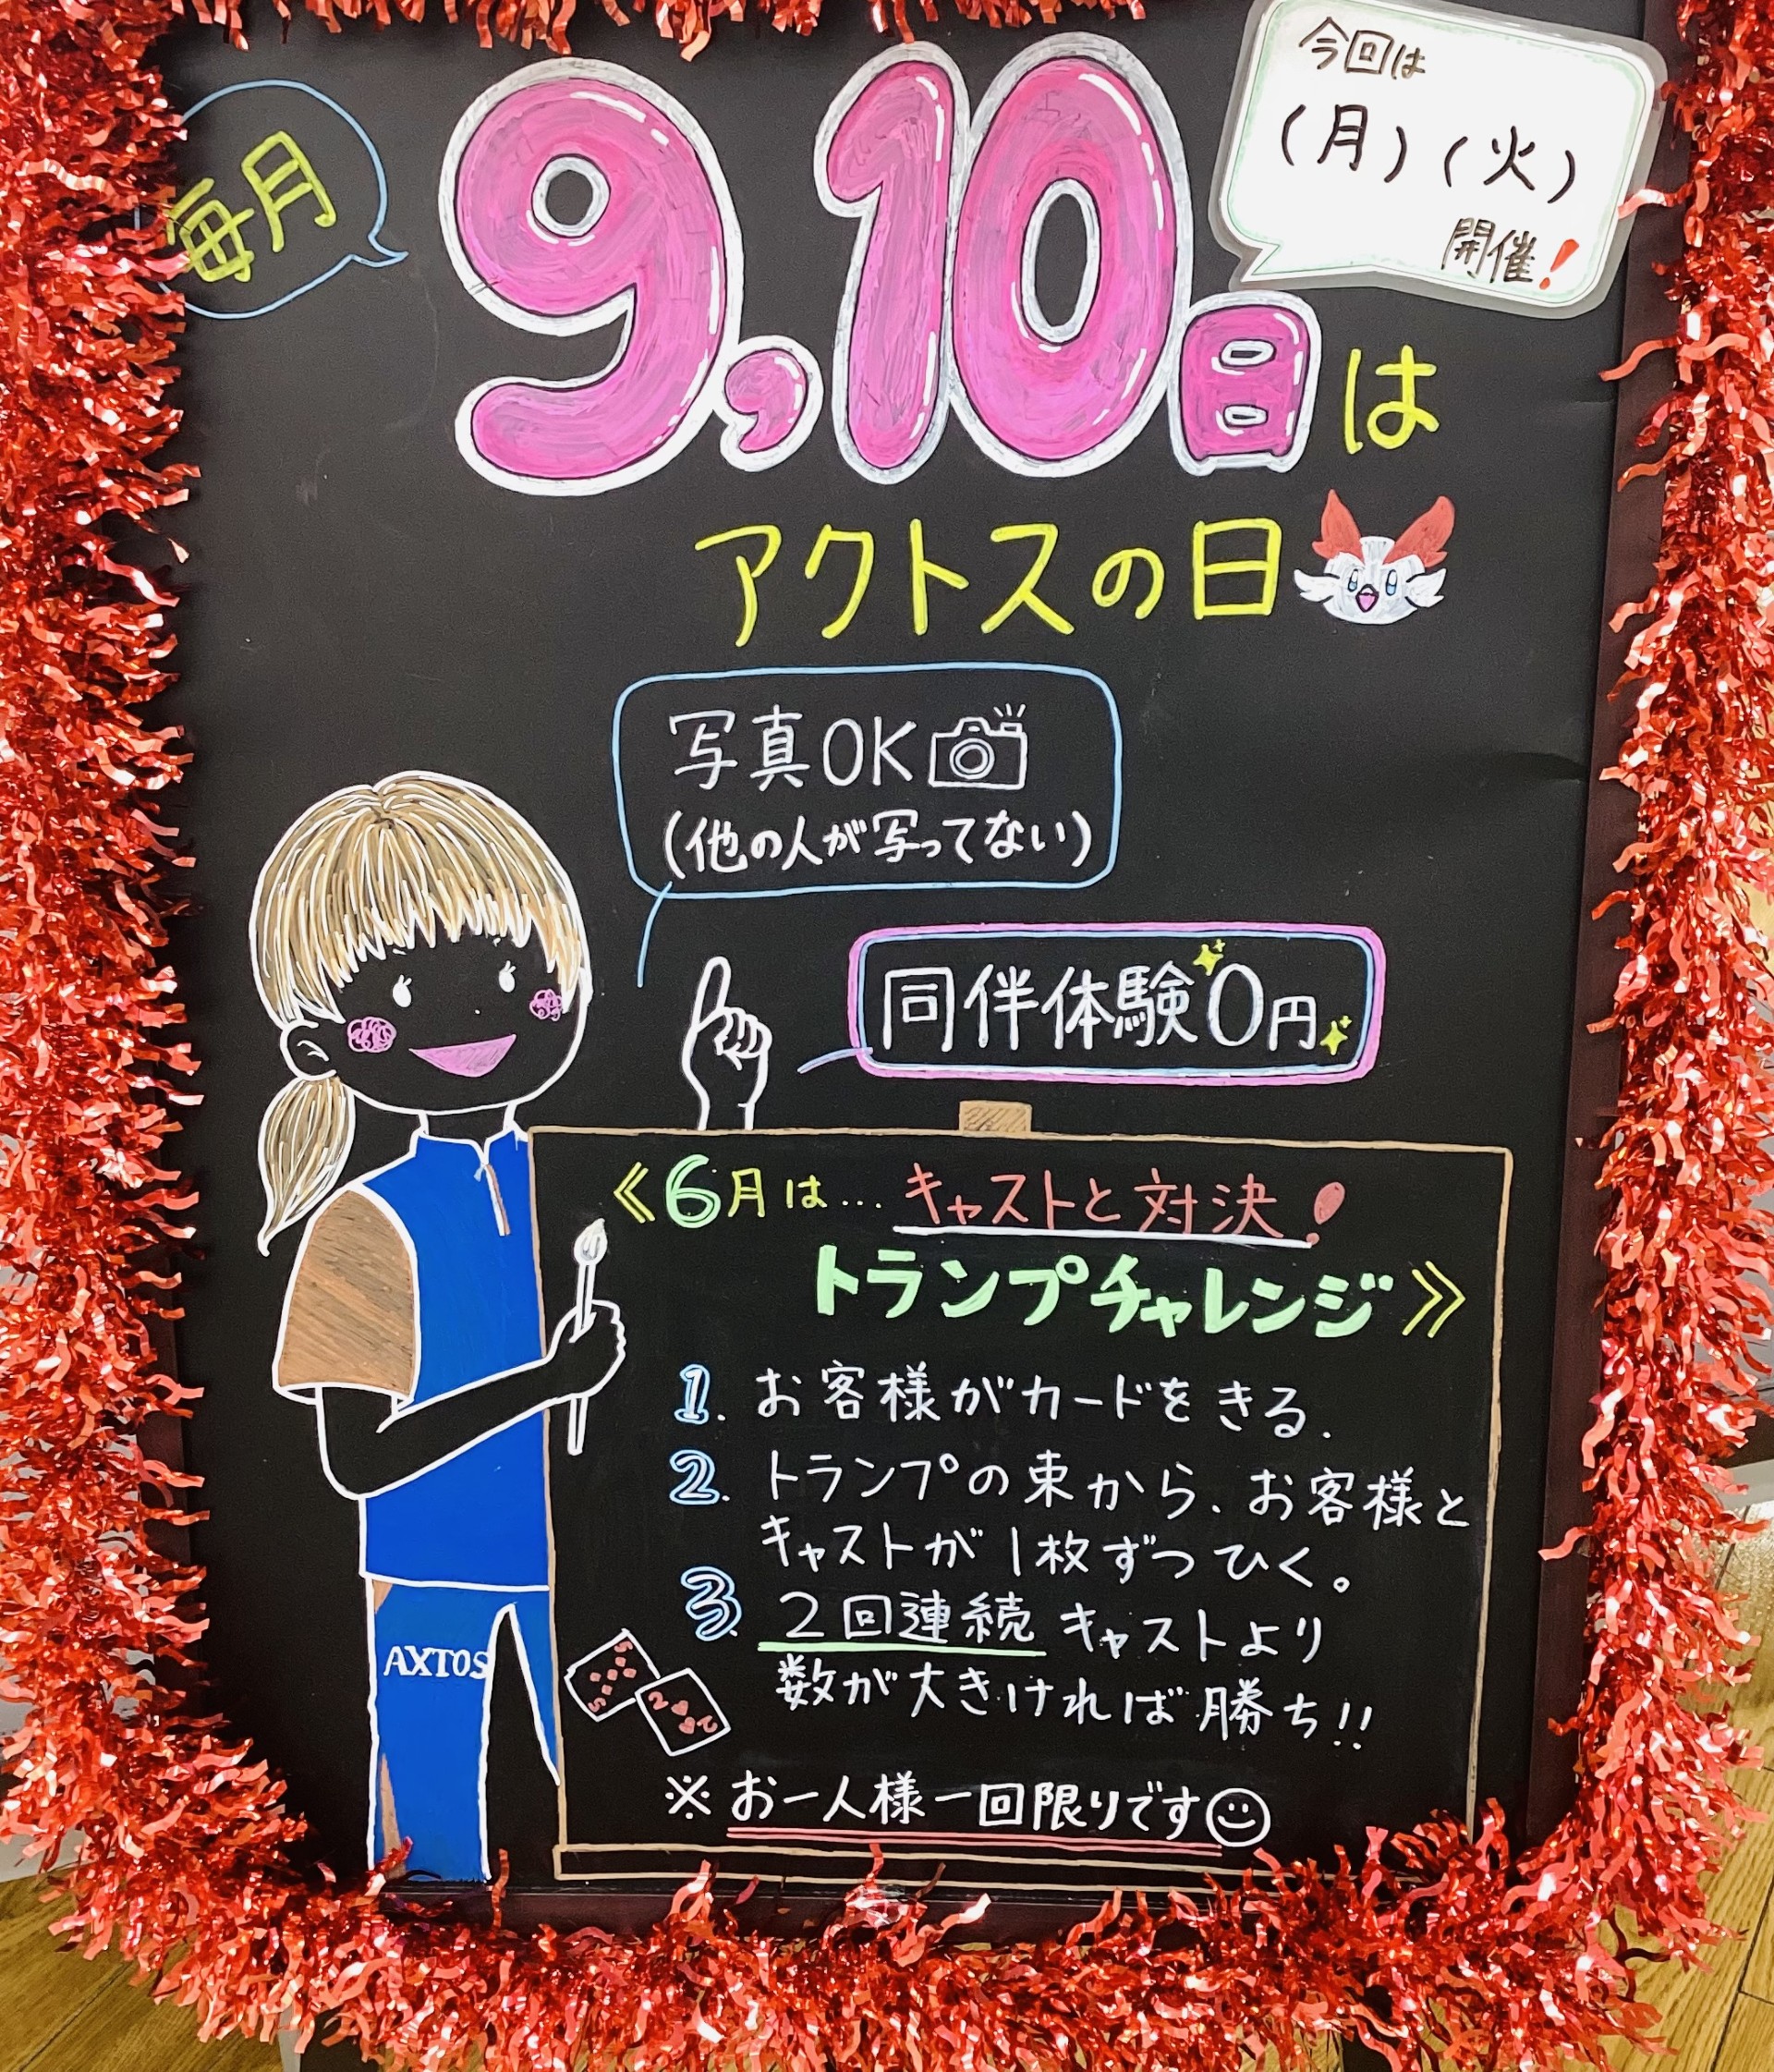 毎月
9,10日は
今回は
(月)(火)
開催!
アクトスの日
写真OK
(他の人が写ってない)
同伴体験0円
《6月は…キャストと対決!
トランプチャレンジ》
1. お客様がカードをきる.
2. トランプの束から、お客様と
キャストが1枚ずつひく。
3. 2回連続キャストより
数が大きければ勝ち!!
※お一人様一回限りです
AXTOS
5
5
2
2